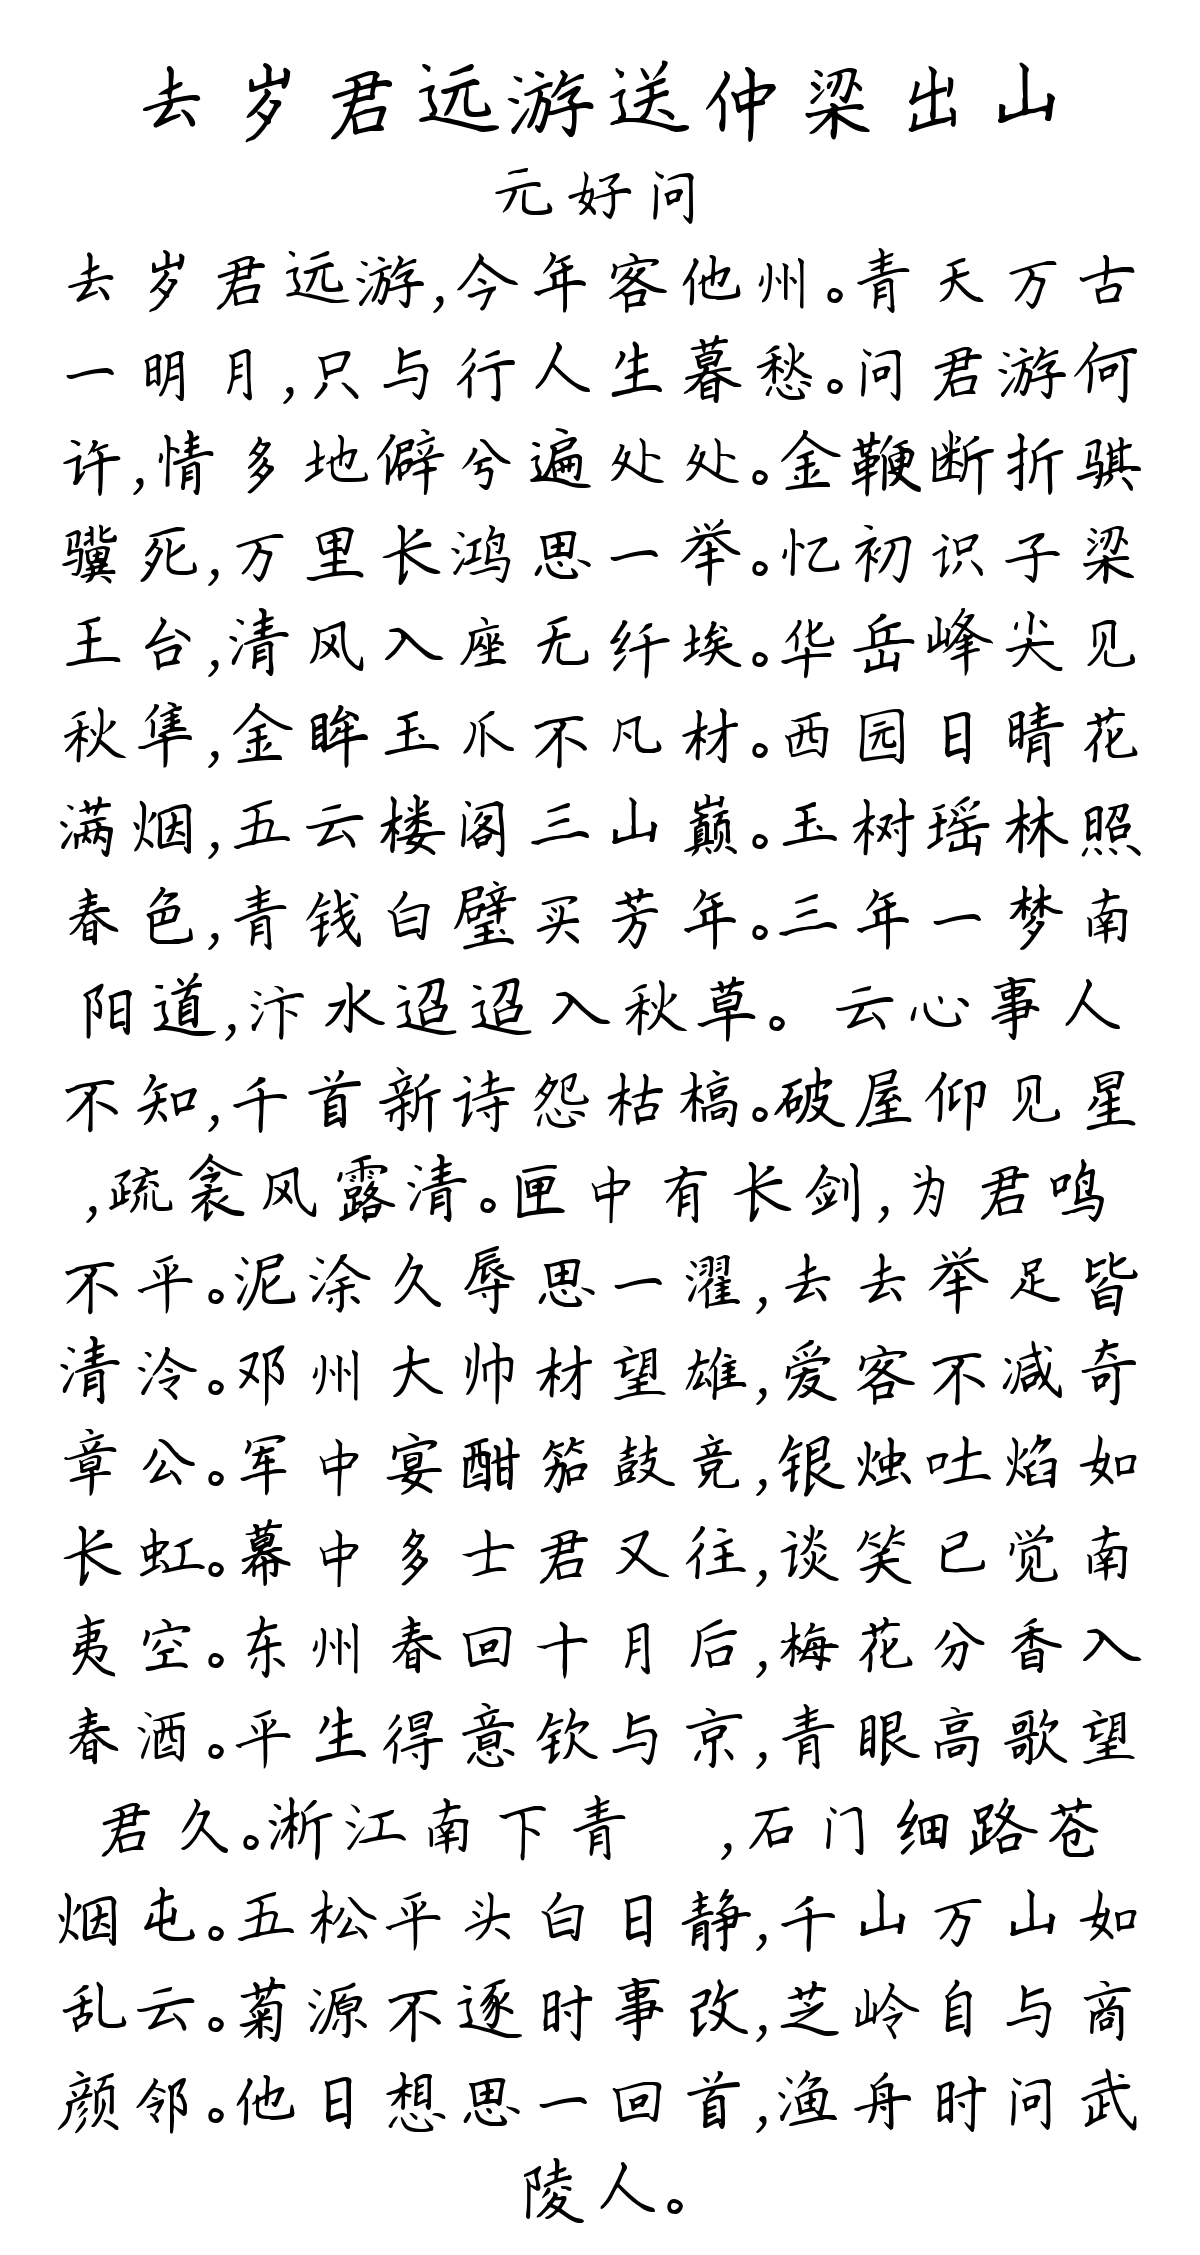 去岁君远游送仲梁出山
元好问
去岁君远游,今年客他州。青天万古
一明月,只与行人生暮愁。问君游何
许,情多地僻兮遍处处。金鞭断折骐
骥死,万里长鸿思一举。忆初识子梁
王台,清风入座无纤埃。华岳峰尖见
秋隼,金眸玉爪不凡材。西园日晴花
满烟,五云楼阁三山巅。玉树瑶林照
春色,青钱白璧买芳年。三年一梦南
阳道,汴水迢迢入秋草。 云心事人
不知,千首新诗怨枯槁。破屋仰见星
,疏衾风露清。匣中有长剑,为君鸣
不平。泥涂久辱思一濯,去去举足皆
清泠。邓州大帅材望雄,爱客不减奇
章公。军中宴酣笳鼓竞,银烛吐焰如
长虹。幕中多士君又往,谈笑已觉南
夷空。东州春回十月后,梅花分香入
春酒。平生得意钦与京,青眼高歌望
君久。淅江南下青 ,石门细路苍
烟屯。五松平头白日静,千山万山如
乱云。菊源不逐时事改,芝岭自与商
颜邻。他日想思一回首,渔舟时问武
陵人。